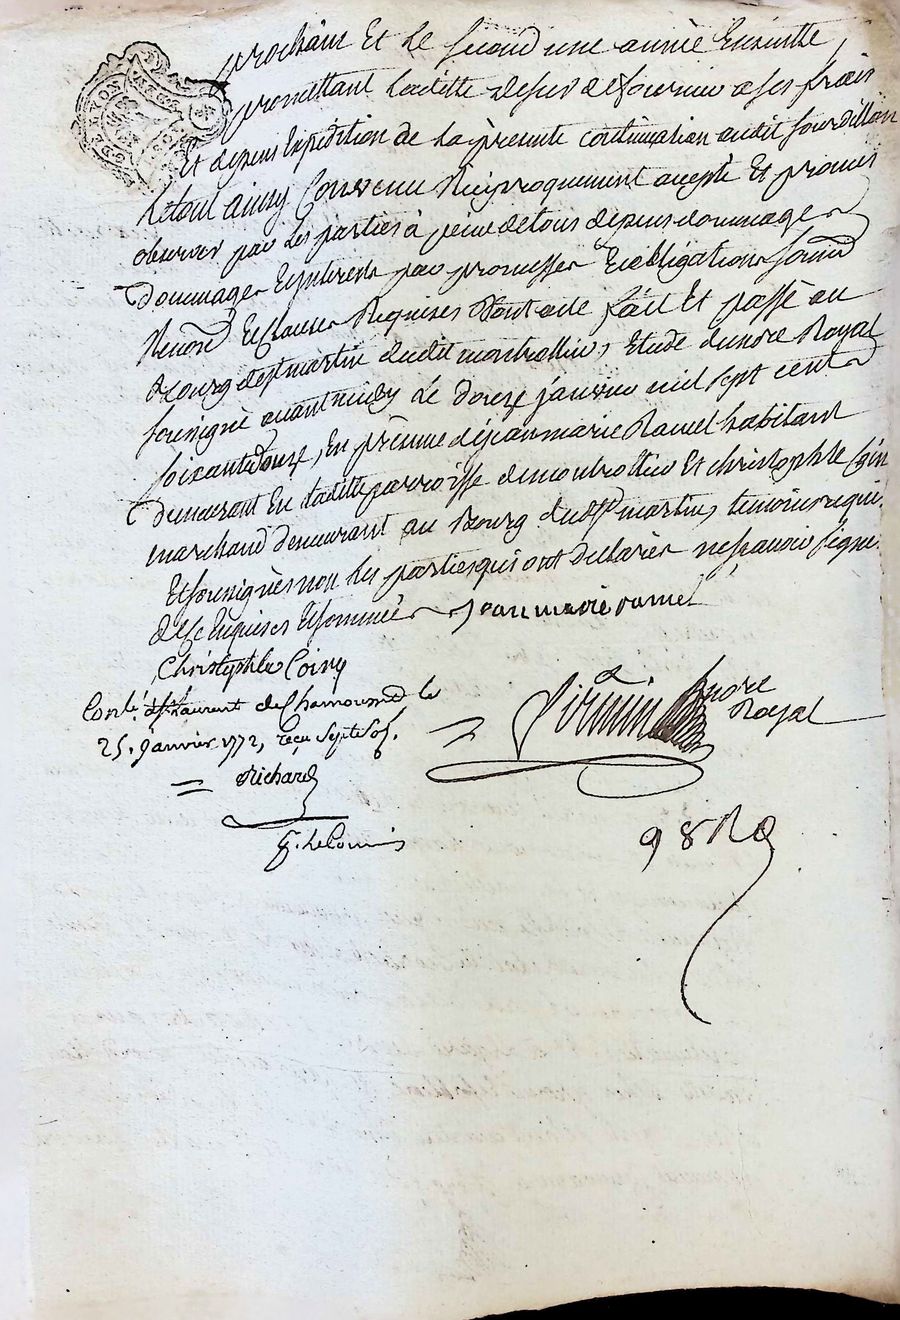 prochain Et Le second une année Ensuitte,
promettant Laditte de fournir a ses frais
Et depens Expedition de La presente continuation audit Sourdillon
Le tout ainsy Convenu Reciproquement accepté Et promis
observer par Les parties à peine de tous depens dommages
dommages Ejnterests par promesses Et obligations soumis
Renond Et clauses Requises Dont acte fait Et passé au
Bourg de st martin dudit montrottier, Etude du nore Royal
soussigné avant midy Le douze janvier mil sept cents
soixante douze, En presence de jean marie Ramel habitant
demeurant En laditte parroisse de montrottier Et christophle Coin
marchand demeurant au Bourg dudt st martin, temoins requis
Et soussignés non Les parties qui ont declarés ne sçavoir signer
de ce Enquises Et sommées jean marie ramel
Christophle Coiny
Conlé. à st Laurent de Chamousset le
25. janvier 1772, reçu sept sols.
Richard
firmin nore
Royal
98 Ro